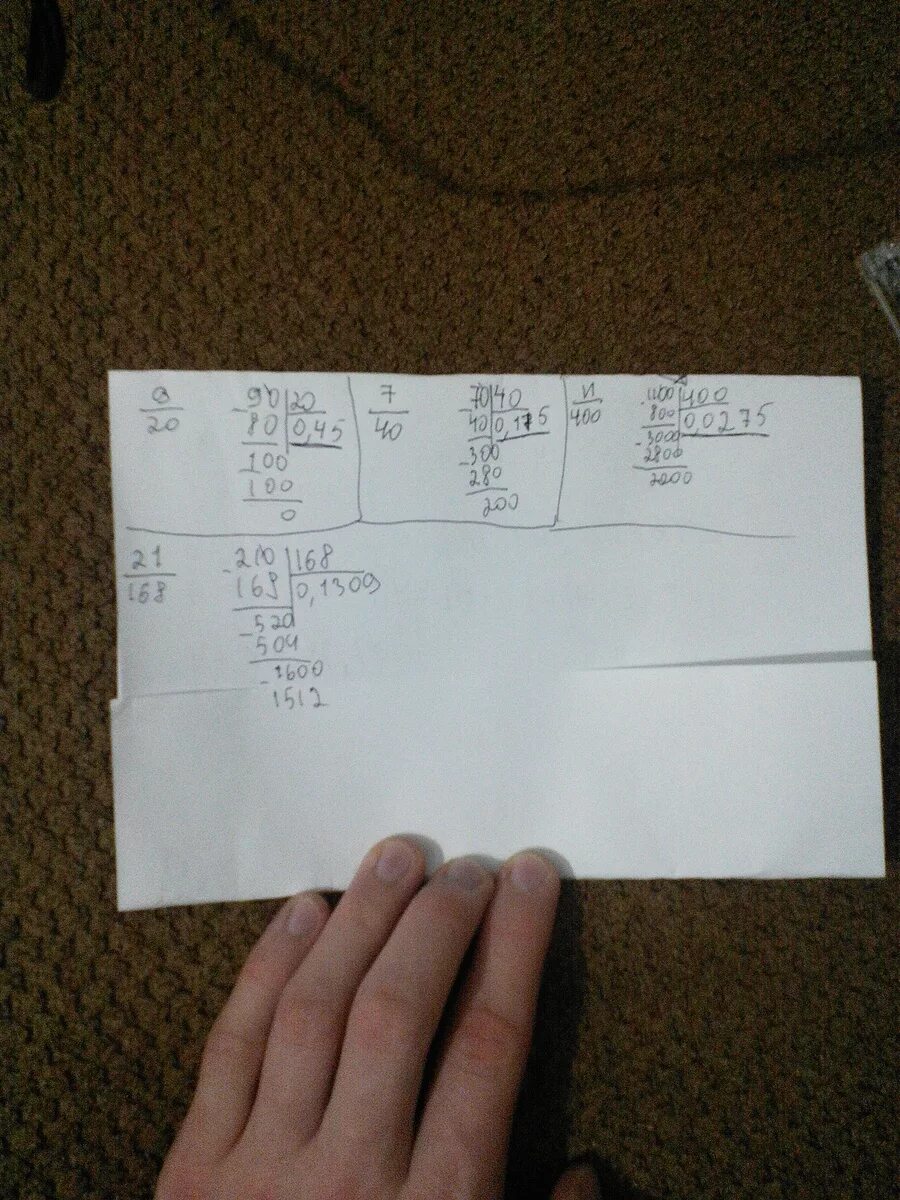 9/20
-90 | 20
80 | 0,45
100
100
0
7/40
-70 | 40
40 | 0,175
-300
280
200
11/400
-1100 | 400
800 | 0,0275
3000
-2800
2000
21/168
-210 | 168
168 | 0,1309
-520
504
-1600
1512